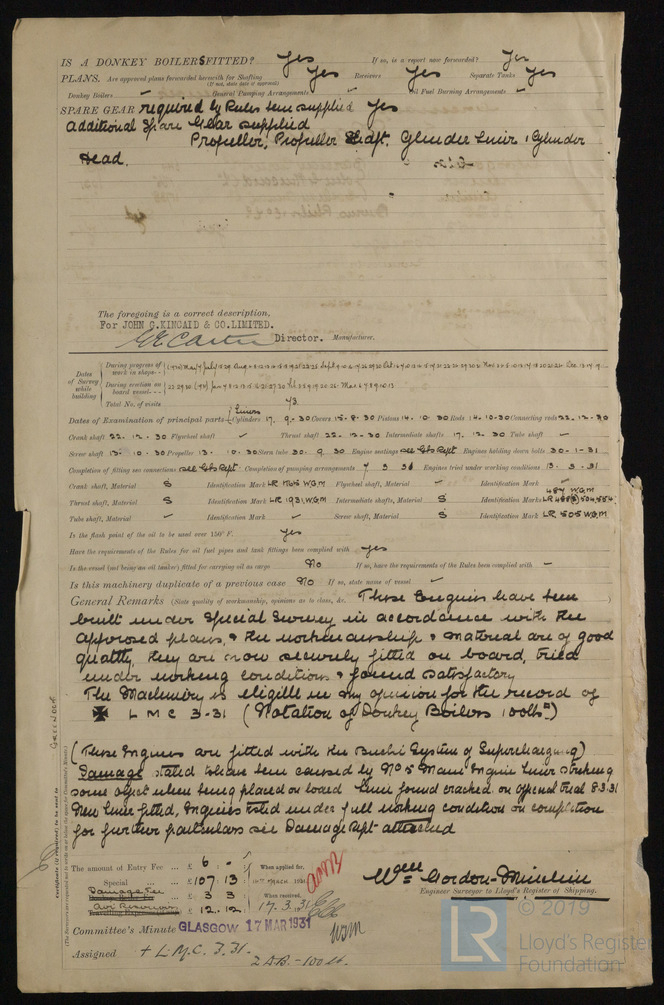 IS A DONKEY BOILERS FITTED? Yes If so, is a report now forwarded? Yes
PLANS. Are approved plans forwarded herewith for Shafting Yes Receivers Yes Separate Tanks Yes
(If not, state date of approval)
Donkey Boilers General Pumping Arrangements Oil Fuel Burning Arrangements
SPARE GEAR required by Rules been supplied Yes
Additional Spare Gear supplied
Propeller, Propeller Shaft, Cylinder Liner, Cylinder
Head.
The foregoing is a correct description,
For JOHN G. KINCAID & CO. LIMITED.
Director. Manufacturer.
Dates of Survey while building
During progress of work in shops
During erection on board vessel
Total No. of visits 43
Dates of Examination of principal parts Cylinders Liners 17. 9. 30 Covers 15. 8. 30 Pistons 14. 10. 30 Rods 14. 10. 30 Connecting rods 22. 12. 30
Crank shaft 22. 12. 30 Flywheel shaft – Thrust shaft 22. 12. 30 Intermediate shafts 17. 12. 30 Tube shaft –
Screw shaft 13. 10. 30 Propeller 13. 10. 30 Stern tube 30. 9. 30 Engine seatings see Gls Rept. Engines holding down bolts 30-1-31
Completion of fitting sea connections see Gls Rept. Completion of pumping arrangements 7 3 31 Engines tried under working conditions 13. 3. 31
Crank shaft, Material S Identification Mark LR 1765 W.G.M Flywheel shaft, Material – Identification Mark –
Thrust shaft, Material S Identification Mark LR 1931 W.G.M Intermediate shafts, Material S Identification Marks
487 W.G.M
Tube shaft, Material – Identification Mark – Screw shaft, Material S Identification Mark LR 505 W.G.M
Is the flash point of the oil to be used over 150° F. Yes
Have the requirements of the Rules for oil fuel pipes and tank fittings been complied with Yes
Is the vessel (not being an oil tanker) fitted for carrying oil as cargo No If so, have the requirements of the Rules been complied with –
Is this machinery duplicate of a previous case No If so, state name of vessel –
General Remarks (State quality of workmanship, opinions as to class, &c. These Engines have been
built under Special Survey in accordance with the
approved plans, & the workmanship & material are of good
quality, they are now securely fitted on board, tried
under working conditions & found satisfactory
The Machinery is eligible in my opinion for the record of
✠ L M C 3-31 (Notation of Donkey Boilers 100 lbs)
(These Engines are fitted with the Buchi System of Supercharging)
Damage stated to have been caused by No 5 Main Engine Liner striking
some object when being placed on board Liner found cracked on official trial 8-3-31
New Liner fitted, Engines tried under full working condition on completion
for further particulars see Damage Rept attached
The amount of Entry Fee £ 6 : - When applied for,
Special £ 107. 13 16th March 1931
Damage Fee £ 3 3 When received,
Air Receivers £ 12. 12 17. 3. 31
Wm Gordon-
Engineer Surveyor to Lloyd's Register of Shipping.
Committee's Minute GLASGOW 17 MAR 1931
Assigned + L.M.C. 3.31.
2 D.B. - 100 lb.
© 2019
LR
Lloyd's Register
Foundation